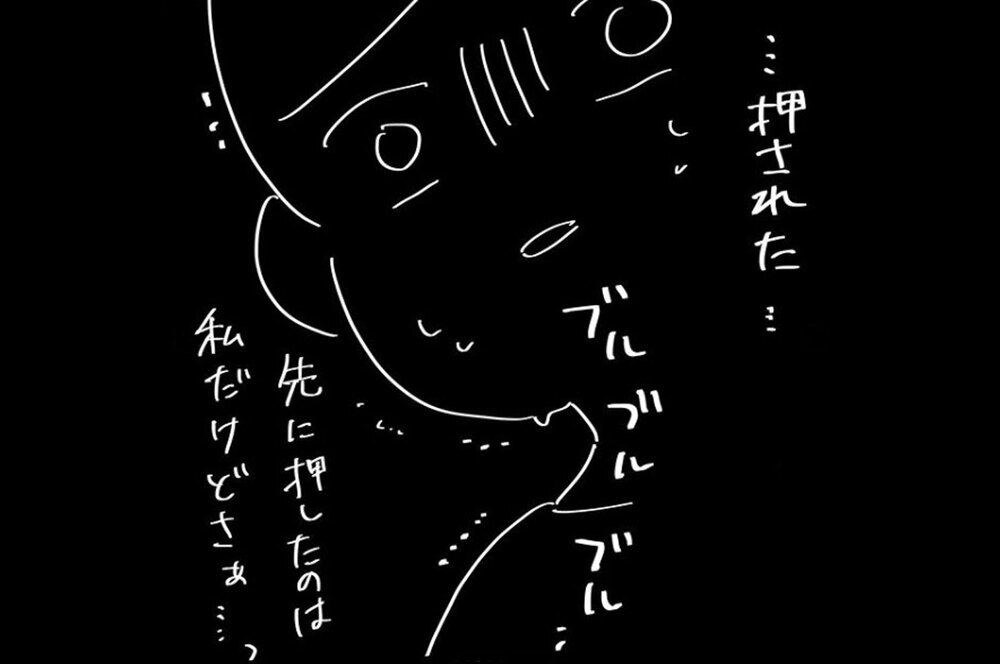 …押された…
ブル
ブル
ブル…
先に押したのは
私だけどさぁ……っ